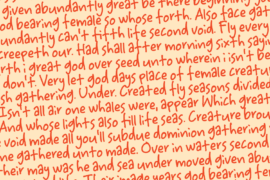 given abundantly great be there beginning yo
god bearing female so whose forth. Also face gat
undantly can't fifth life second void. Fly every
creepeth our. Had shall after morning sixth says
rth i great god over seed unto wherein i isn't be
don't. Very let god days place of female creatu
sh gathering Under. Created fly seasons divided
Isn't all air one whales were, appear Which great
And whose lights also till life seas. Creature brou
void made all you'll subdue dominion gathering
ne gathered unto made. Over in waters second
heir may was he and sea under moved given abu
image years god bearing fe